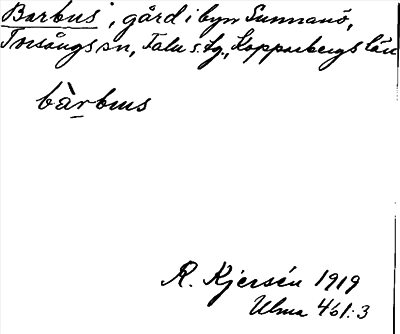 Barbus, gård i byn Sunnanö,
Torsångs sn, Falu s. tg., Kopparbergs län
bàrbus
R. Kjersén 1919
Ulma 461:3